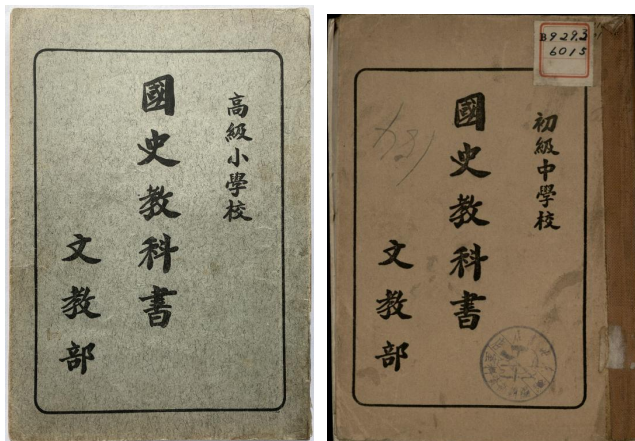 高級小學校
國史教科書
文教部
B929.3
6015
初級中學校
國史教科書
文教部